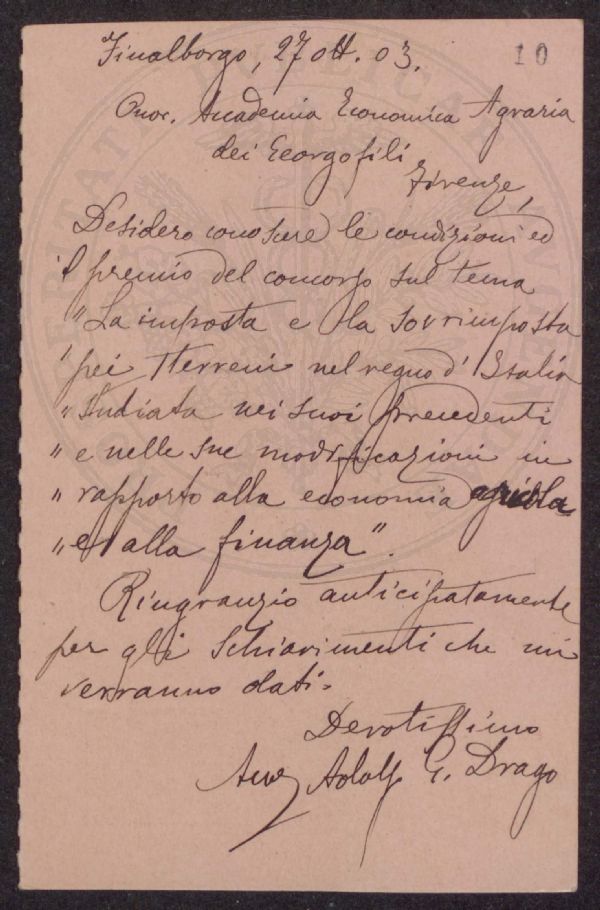 Finalborgo, 27 ott. 03.
10
Onor. Accademia Economica Agraria
dei Georgofili
Firenze,
Desidero conoscere le condizioni ed
il premio del concorso sul tema
"La imposta e la sovrimposta
" pei terreni nel regno d'Italia
" studiata nei suoi precedenti
" e nelle sue modificazioni in
" rapporto alla economia agricola
" e alla finanza".
Ringranzio anticipatamente
per gli schiarimenti che mi
verranno dati.
Devotissimo
Avv Adolf G. Drago